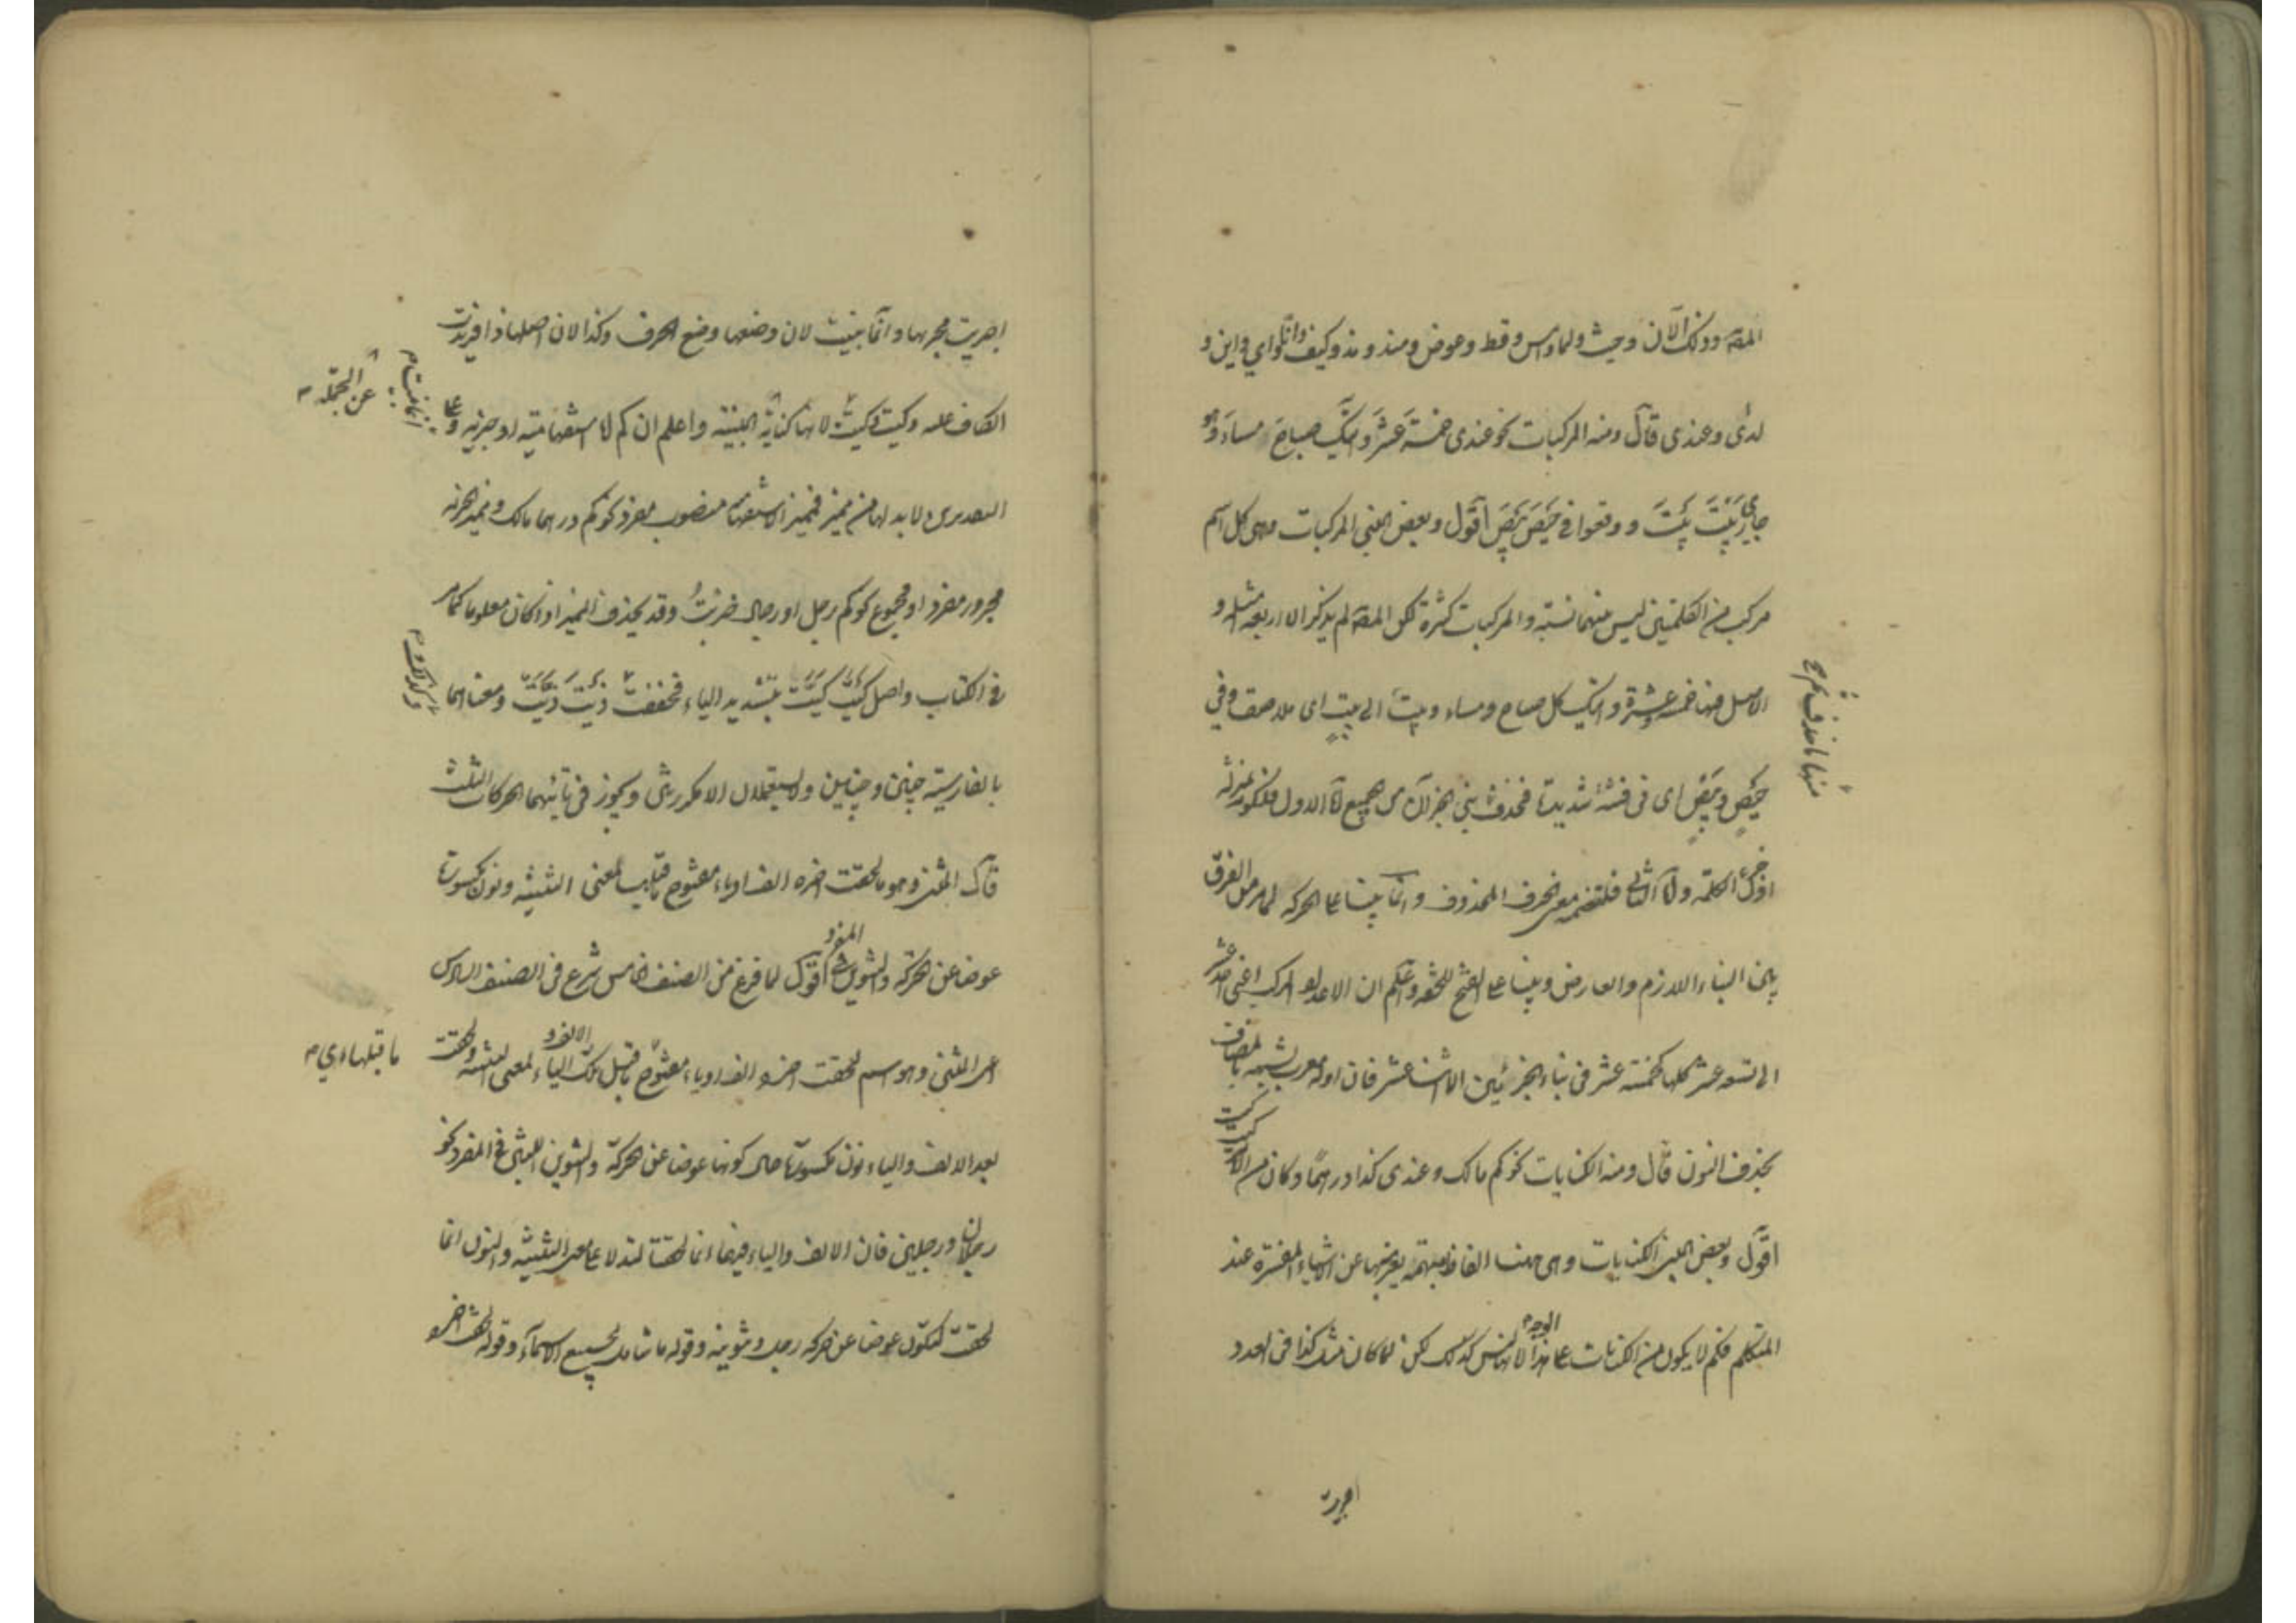 المصـ وذلك الآن وحيث ولما وامس وقط وعوض ومنذ ومذ وكيف وانى واي واين و
لدى وعندى قال ومنه المركبات نحو عندى خمسة عشر واتيك صباح مساء وهو
جاري بيت بيت ووقعوا في حيص بيص اقول وبعض المبنى المركبات وهى كل اسم
مركب من الكلمتين ليس بينهما نسبة والمركبات كثيرة لكن المصـ لم يذكر الا اربعة امثلة و
الاصل فيها خمسة وعشرة واتيك كل صباح ومساء وبيت الى بيت اى ملاصق وفي
حيص وبيص اى فى فتنة شديدة فحذف بنى الجزآن من الجميع اما الاول فلكونه بمنزلة
جزء الكلمة واما الثانى فلتضمنه معنى الحرف المحذوف وانما بنيا على الحركة لما مر من الفرق
بين البناء اللازم والعارض وبنيا على الفتح للخفة واعلم ان الاعداد المركبة اعنى احد عشر
الى تسعة عشر كلها كخمسة عشر فى بناء الجزئين الا اثنا عشر فان اوله معرب لشبهه بالمضاف
بحذف النون قال ومنه الكنايات نحو كم مالك وعندى كذا درهما وكان من الامر
كيت كيت
اقول وبعض المبنى الكنايات وهى ههنا الفاظ مبهمة يعبر بها عن اشياء المفسرة عند
المتكلم فكم لا يكون من الكنايات على هذا الوجه لانها ليس كذلك لكن لما كان مثل كذا فى العدد
اجريت
اجريت مجريها وانما بنيت لان وضعها وضع الحرف وكذا لان اصلها ذا فزيدت
الكاف عليه وكيت وكيت لانها كناية الجملة المبنية واعلم ان كم اما استفهامية او خبرية وعلى
التقديرين لا بد لها من مميز فمميز الاستفهامية منصوب مفرد نحو كم درهما مالك ومميز الخبرية
مجرور مفرد او مجموع نحو كم رجل او رجال ضربت وقد يحذف المميز اذا كان معلوما كما مر
في الكتاب واصل كيت كيت بتشديد الياء فخففت ذيت ذيت ومعناهما
بالفارسية چنين وچنين ولا يستعملان الا مكررين ويجوز فى تائيهما الحركات الثلث
قال المثنى وهو ما لحقت اخره الف او ياء مفتوح ما قبلها لمعنى التثنية ونون مكسورة
عوضا عن الحركة والتنوين فى المفرد اقول لما فرغ من الصنف الخامس شرع فى الصنف السادس
اعنى المثنى وهو اسم لحقت اخره الف او ياء مفتوح ما قبل تلك الياء لمعنى التثنية ولحقت
بعد الالف والياء نون مكسورة حال كونها عوضا عن الحركة والتنوين اللتين في المفرد نحو
رجلان ورجلين فان الالف والياء فيهما انما لحقتا لتدلا على معنى التثنية والنون انما
لحقت لتكون عوضا عن حركة رجل وتنوينه وقوله ما شامل لجميع الاسماء وقوله لحقت اخره
عن الجملة
ما قبلها اي